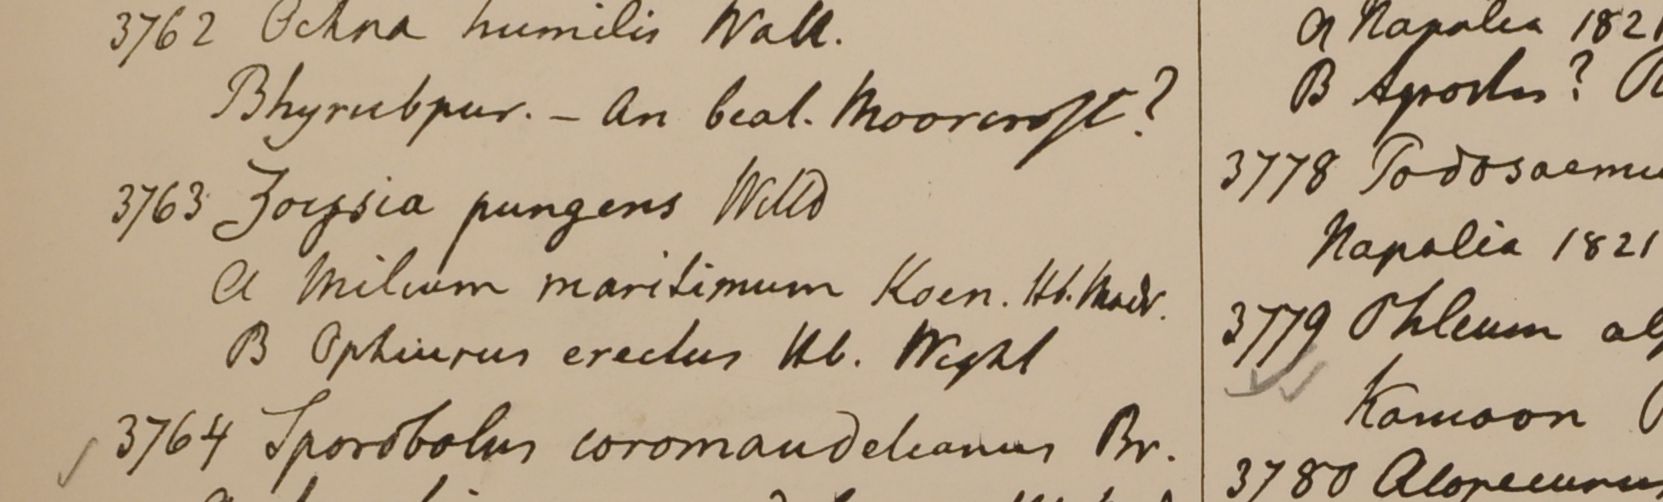 3762 Ochna humilis Wall.
Bhyrubpur. – An beal. Moorcroft?
3763 Zoysia pungens Willd
A Milium maritimum Koen. Hb. Madr.
B Ophiurus erectus Hb. Wight
3764 Sporobolus coromandelianus Br.
A Napalia 1821
B Agrostis?
3778
Napalia 1821
3779 Phleum
Kamaon
3780